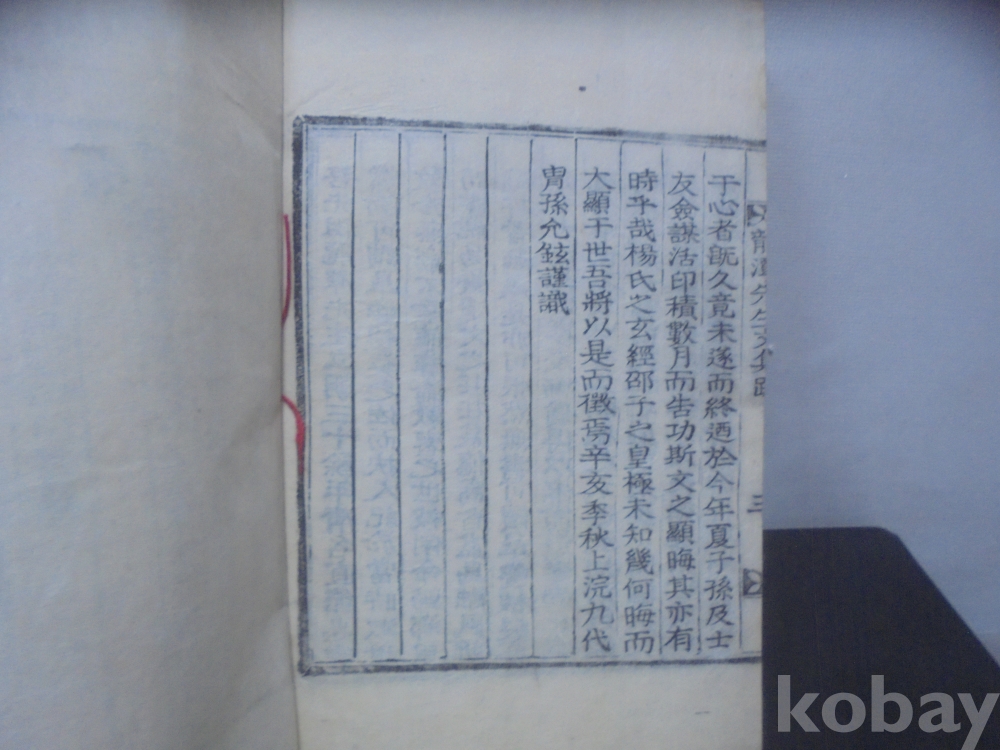 龍潭先生文集跋
三
于心者旣久竟未遂而終迺於今年夏子孫及士
友僉謀活印積數月而告功斯文之顯晦其亦有
時乎哉楊氏之玄經邵子之皇極未知幾何晦而
大顯于世吾將以是而徵焉辛亥季秋上浣九代
胄孫允鉉謹識
kobay